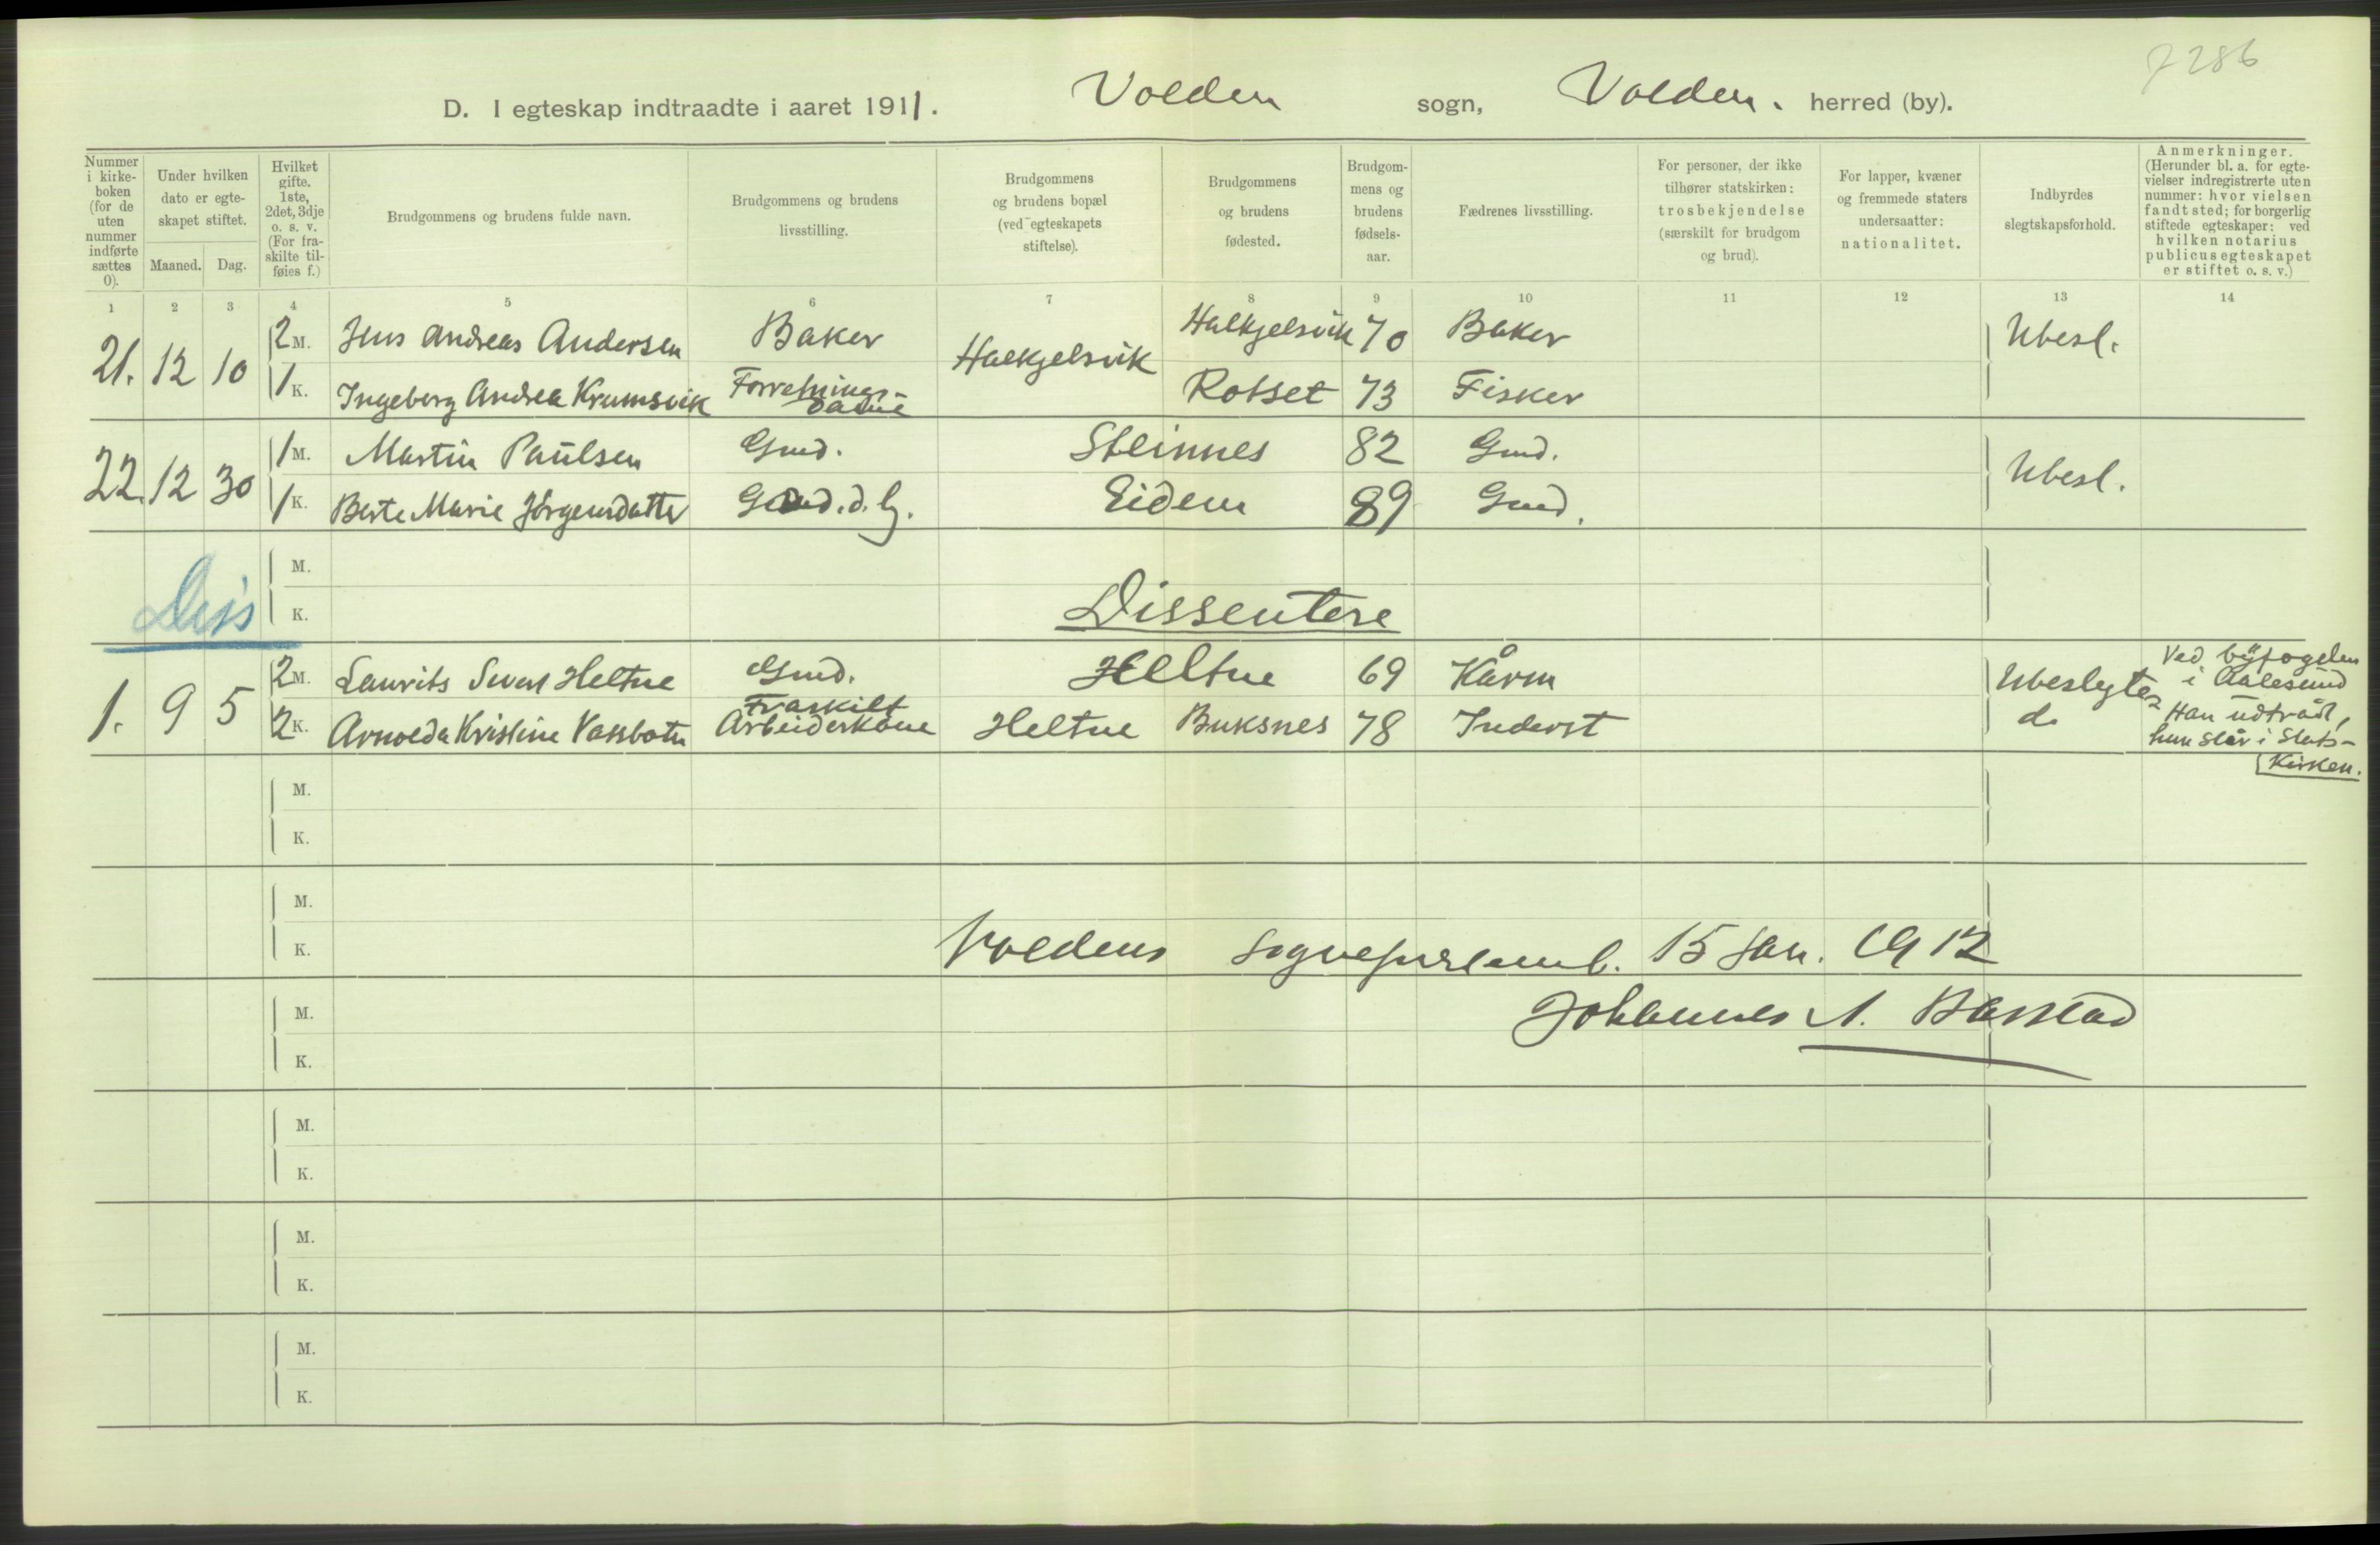 7286
D. I egteskap indtraadte i aaret 1911. Volden sogn, Volden. herred (by).
Nummer i kirke-boken (for de uten nummer indførte sættes 0).
Under hvilken dato er egte-skapet stiftet.
Maaned. Dag.
Hvilket gifte. 1ste, 2det, 3dje o. s. v. (For fra-skilte til-føies f.)
Brudgommens og brudens fulde navn.
Brudgommens og brudens livsstilling.
Brudgommens og brudens bopæl (ved egteskapets stiftelse).
Brudgommens og brudens fødested.
Brudgom-mens og brudens fødsels-aar.
Fædrenes livsstilling.
For personer, der ikke tilhører statskirken: trosbekjendelse (særskilt for brudgom og brud).
For lapper, kvæner og fremmede staters undersaatter: nationalitet.
Indbyrdes slegtskapsforhold.
Anmerkninger. (Herunder bl. a. for egte-vielser indregistrerte uten nummer: hvor vielsen fandt sted; for borgerlig stiftede egteskaper: ved hvilken notarius publicus egteskapet er stiftet o. s. v.)
1 2 3 4 5 6 7 8 9 10 11 12 13 14
21. 12 10 2 M. Jens Andreas Andersen Baker Halkjelsvik Halkjelsvik 70 Baker Ubesl.
1 K. Ingeborg Andrea Krumsvik Forretnings-dame Rotset 73 Fisker
22. 12 30 1 M. Martin Paulsen Gmd. Steinnes 82 Gmd. Ubesl.
1 K. Berte Marie Jörgensdatter Gmd. d. Eidem 89 Gmd.
M.
Dis K. Dissentere
1. 9 5 2 M. Laurits Heltne Gmd. Heltne 69 Kårm Ubeslegtede Ved byfogden i Aalesund
2 K. Arnolda Kristine Vassbotn Fraskilt Arbeiderkone Heltne Buksnes 78 Inderst Han udtrådt, hun står i Stats-Kirken.
M.
K.
M.
K. Voldens sogneprestemb. 15 Jan. 1912
M. Johannes A. Barstad
K.
M.
K.
M.
K.
M.
K.